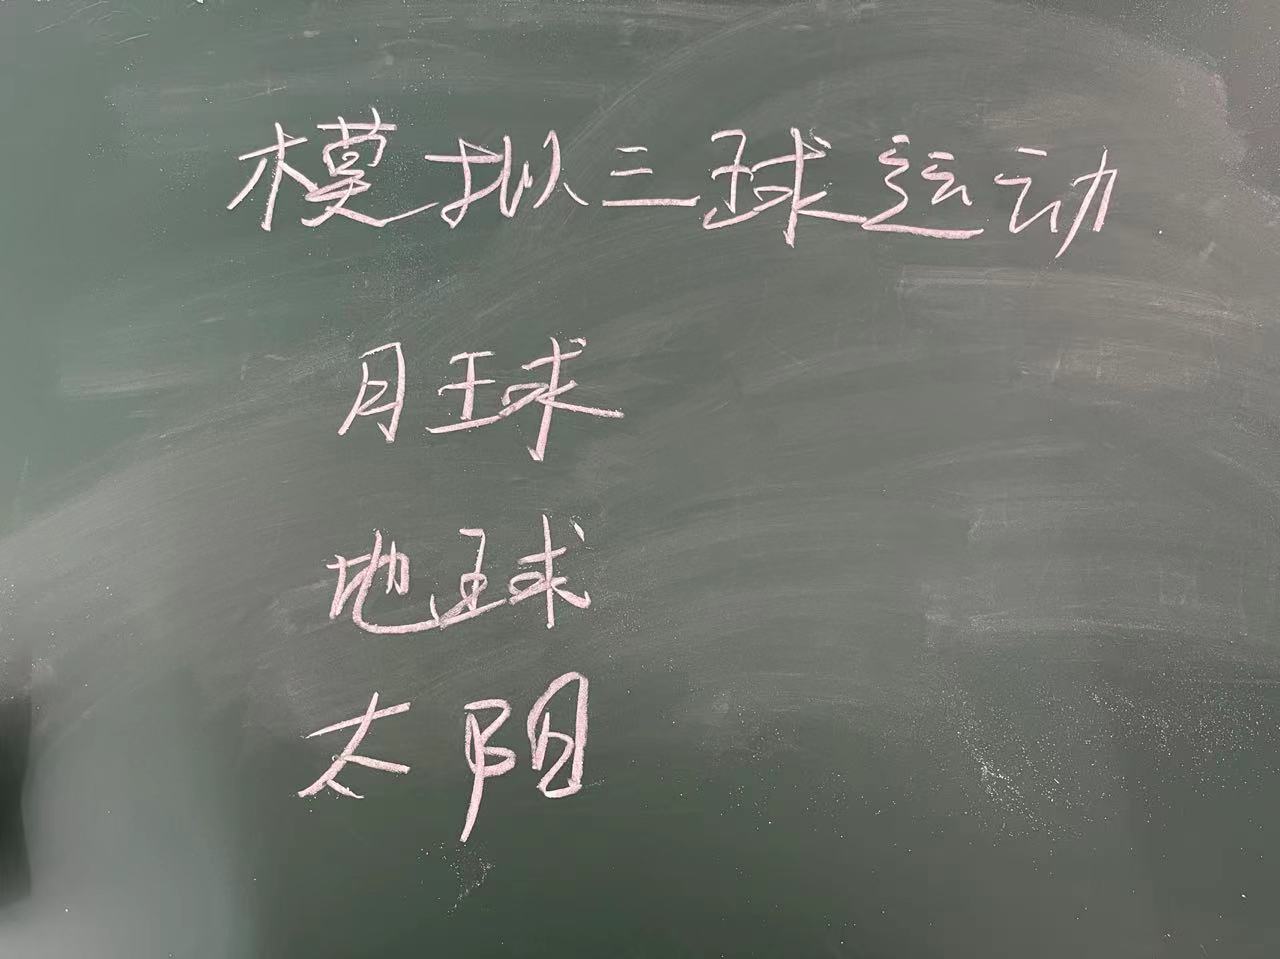 模拟三球运动
月球
地球
太阳